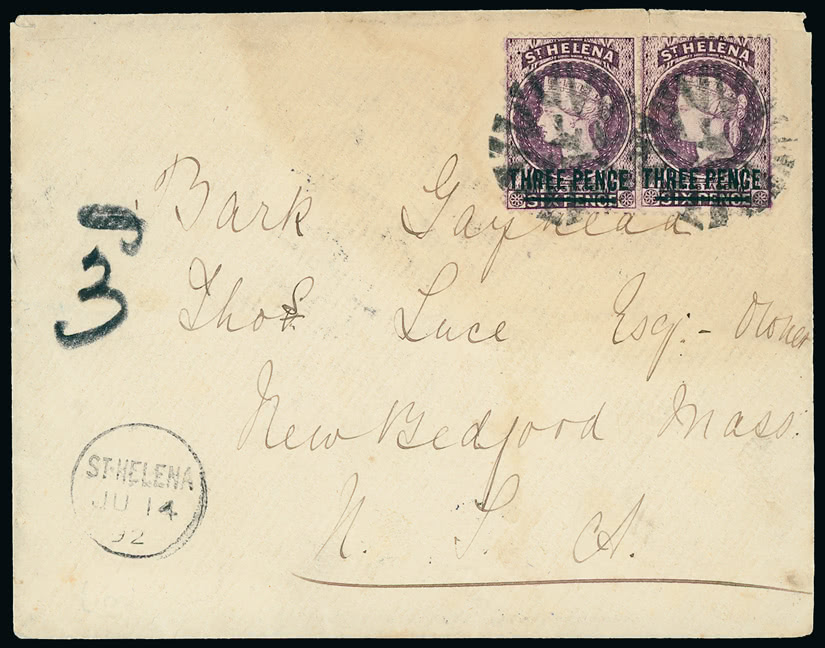 ST HELENA ST HELENA
THREE PENCE THREE PENCE
SIX PENCE SIX PENCE
Bark Gayhead
3d
Thos. Luce Esq. - Owner
New Bedford Mass.
U. S. A.
ST. HELENA
JU 14
92